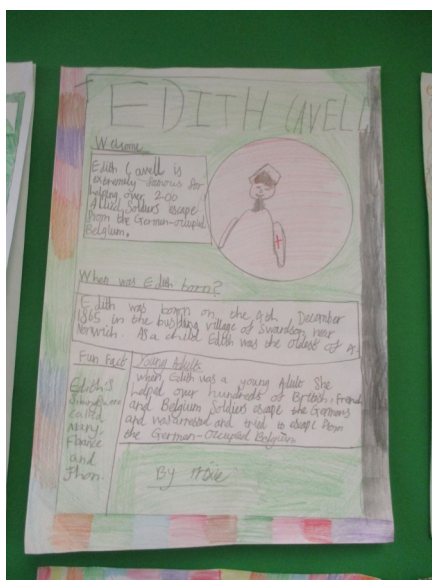 EDITH CAVELL
Welcome
Edith Cavell is
extremely famous for
helping over 200
Allied Soldiers escape
from the German-occupied
Belgium.
When was Edith born?
Edith was born on the 4th December
1865 in the bustling village of Swardston, near
Norwich. As a child Edith was the oldest of 4.
Fun Fact
Edith's
were
called
Mary,
Florence
and
Jhon.
Young Adults
When Edith was a young Adult She
helped over hundreds of British, French
and Belgium Soldiers escape the Germans
and was arrested and tried to escape from
the German-occupied Belgium
By